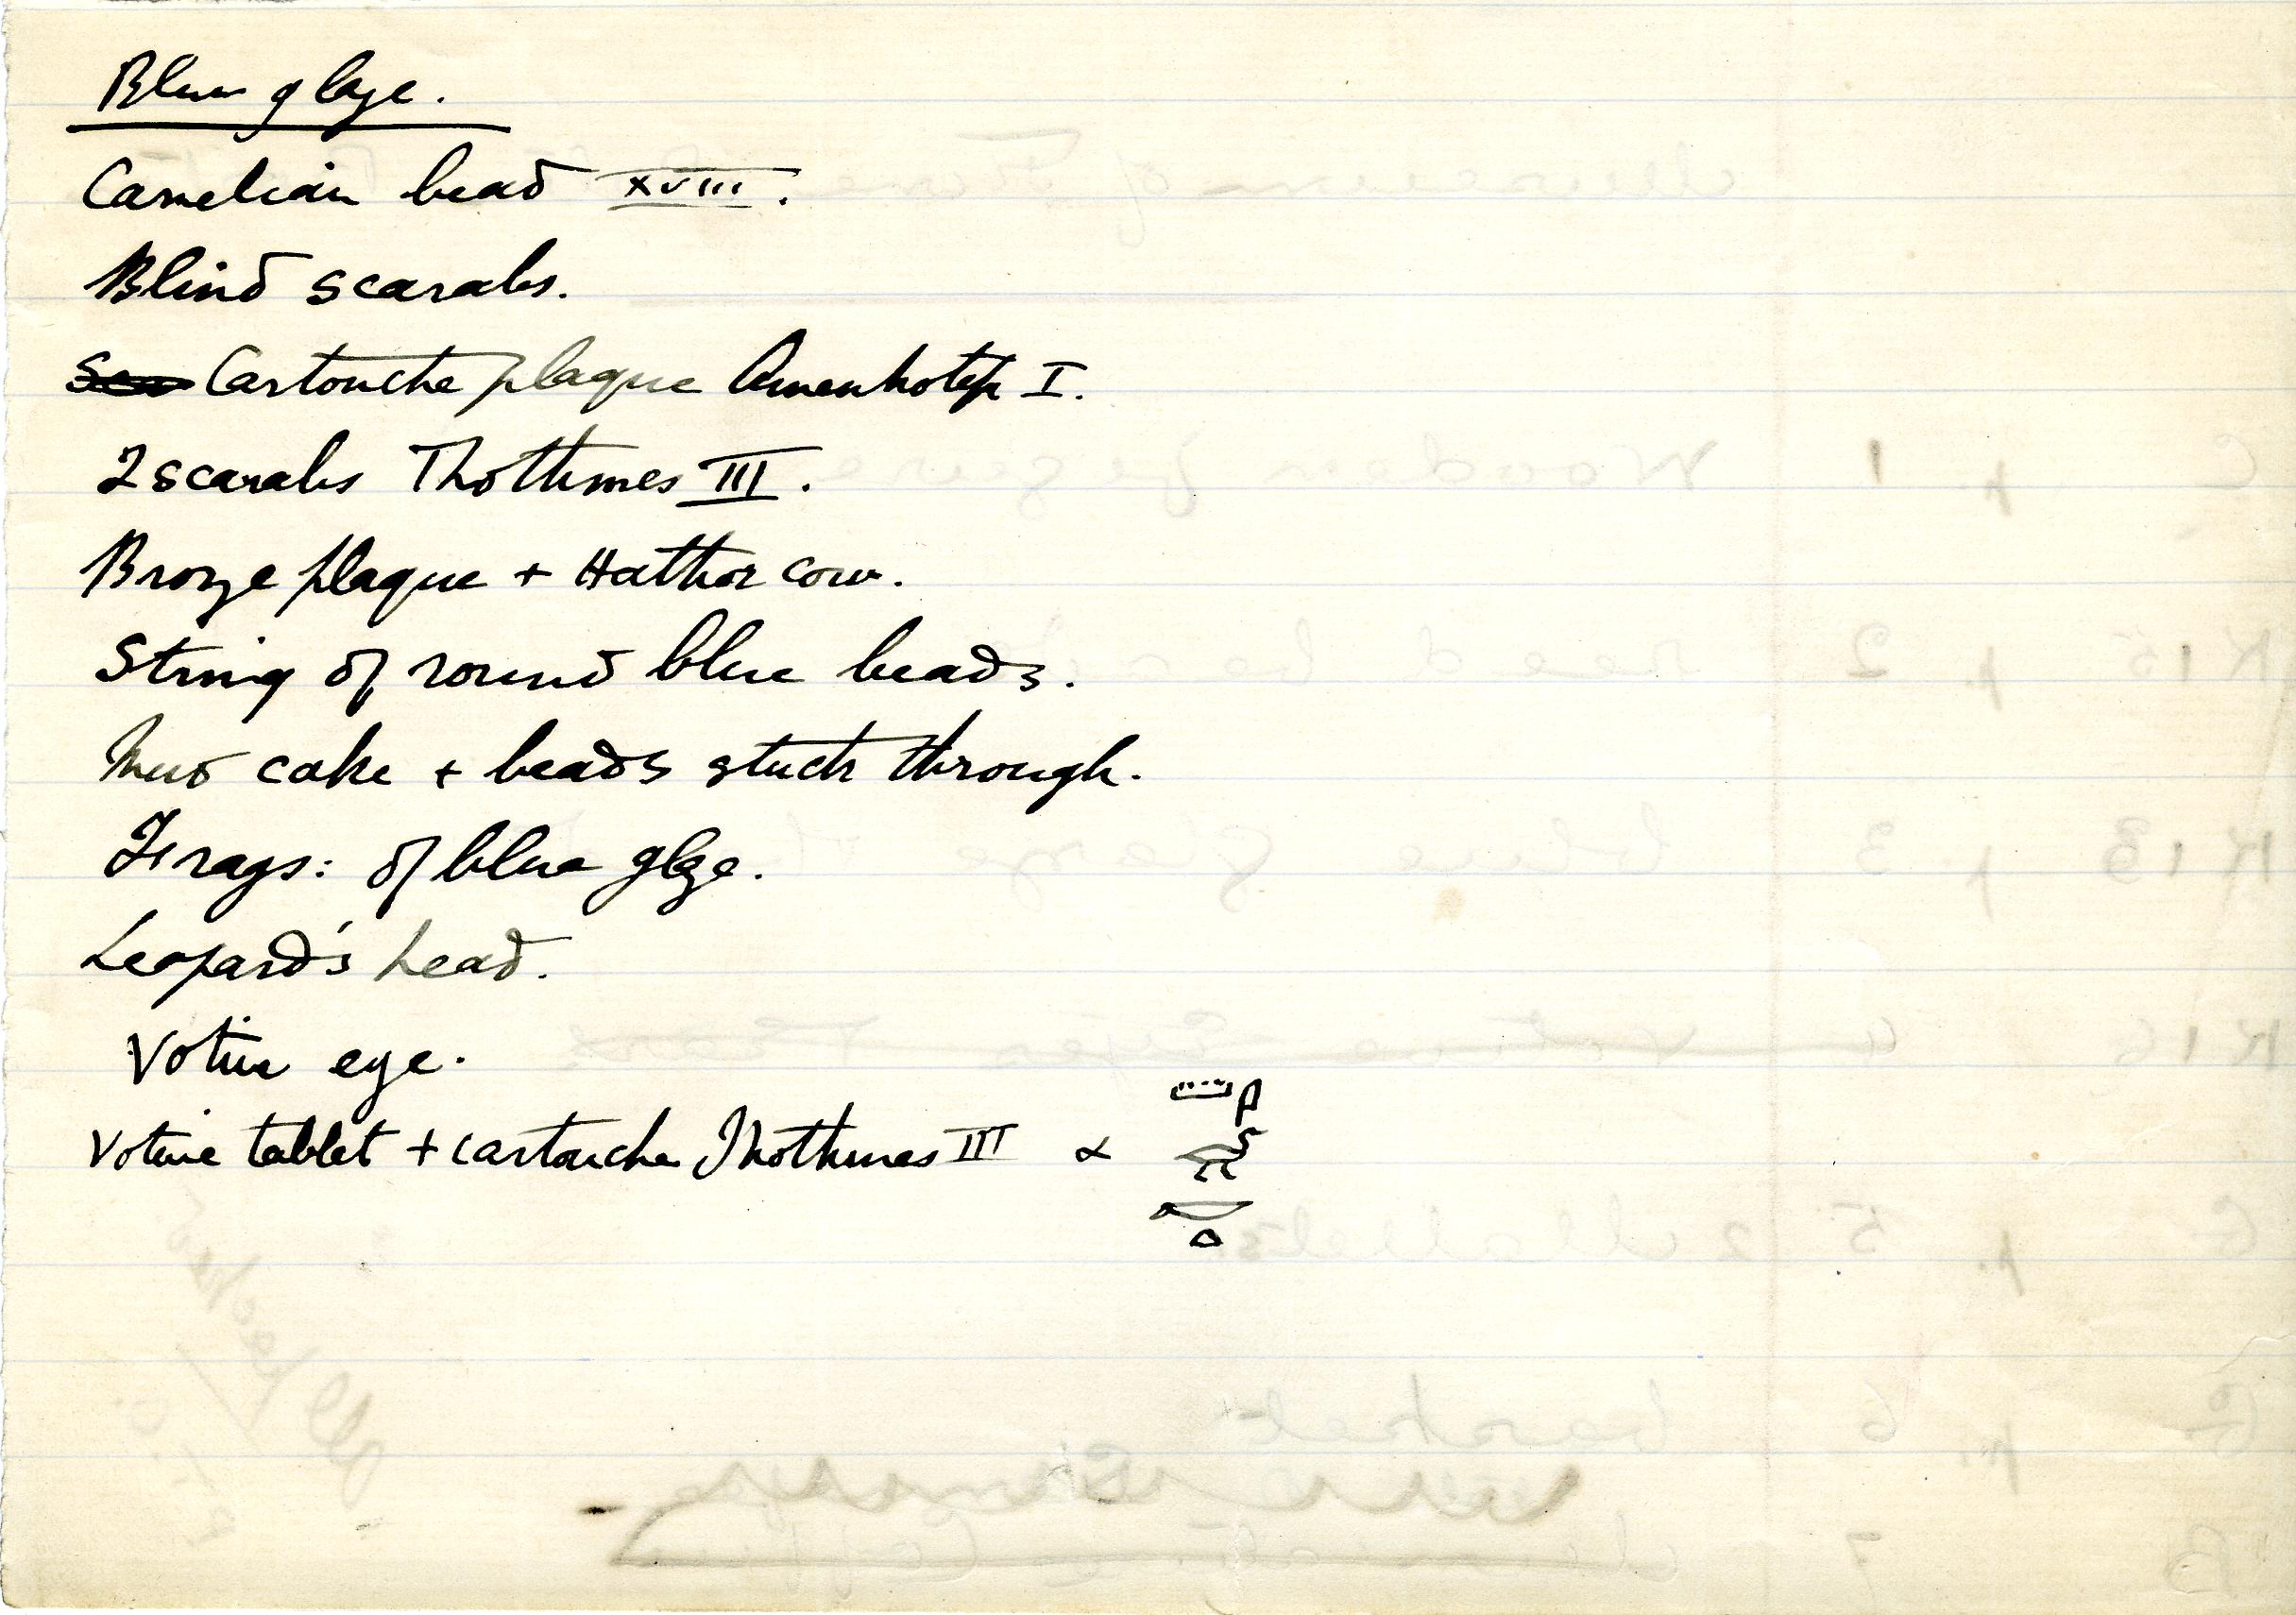 Blue glaze.
Carnelian bead XVIII.
Blind scarabs.
Cartouche plaque Amenhotep I.
2 scarabs Thothmes III.
Bronze plaque + Hathor cow.
String of round blue beads.
Mud cake + beads stuck through.
Frags: of blue glaze.
Leopard's head.
Votive eye.
Votive tablet + cartouche Thothmes III